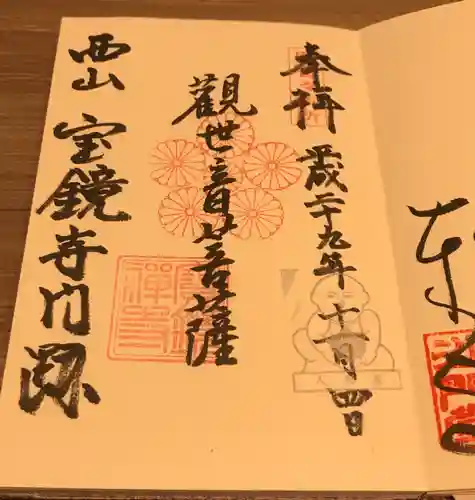 奉拝
平成二十九年十一月四日
觀世音菩薩
西山 宝鏡寺门跡